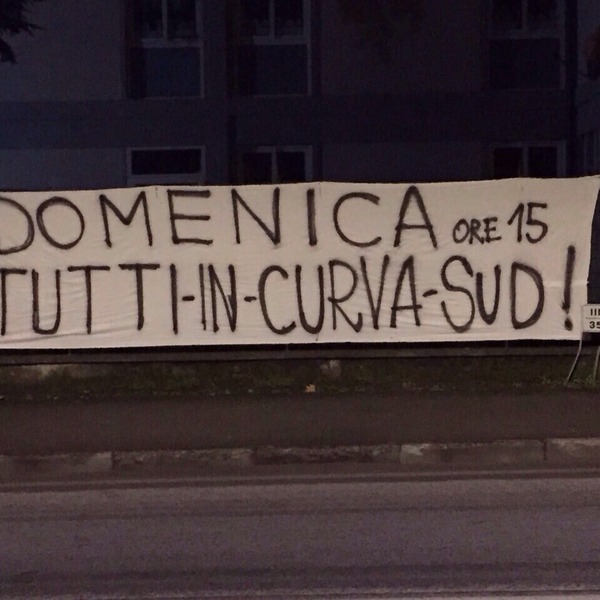 DOMENICA ORE 15
TUTTI-IN-CURVA-SUD!
III